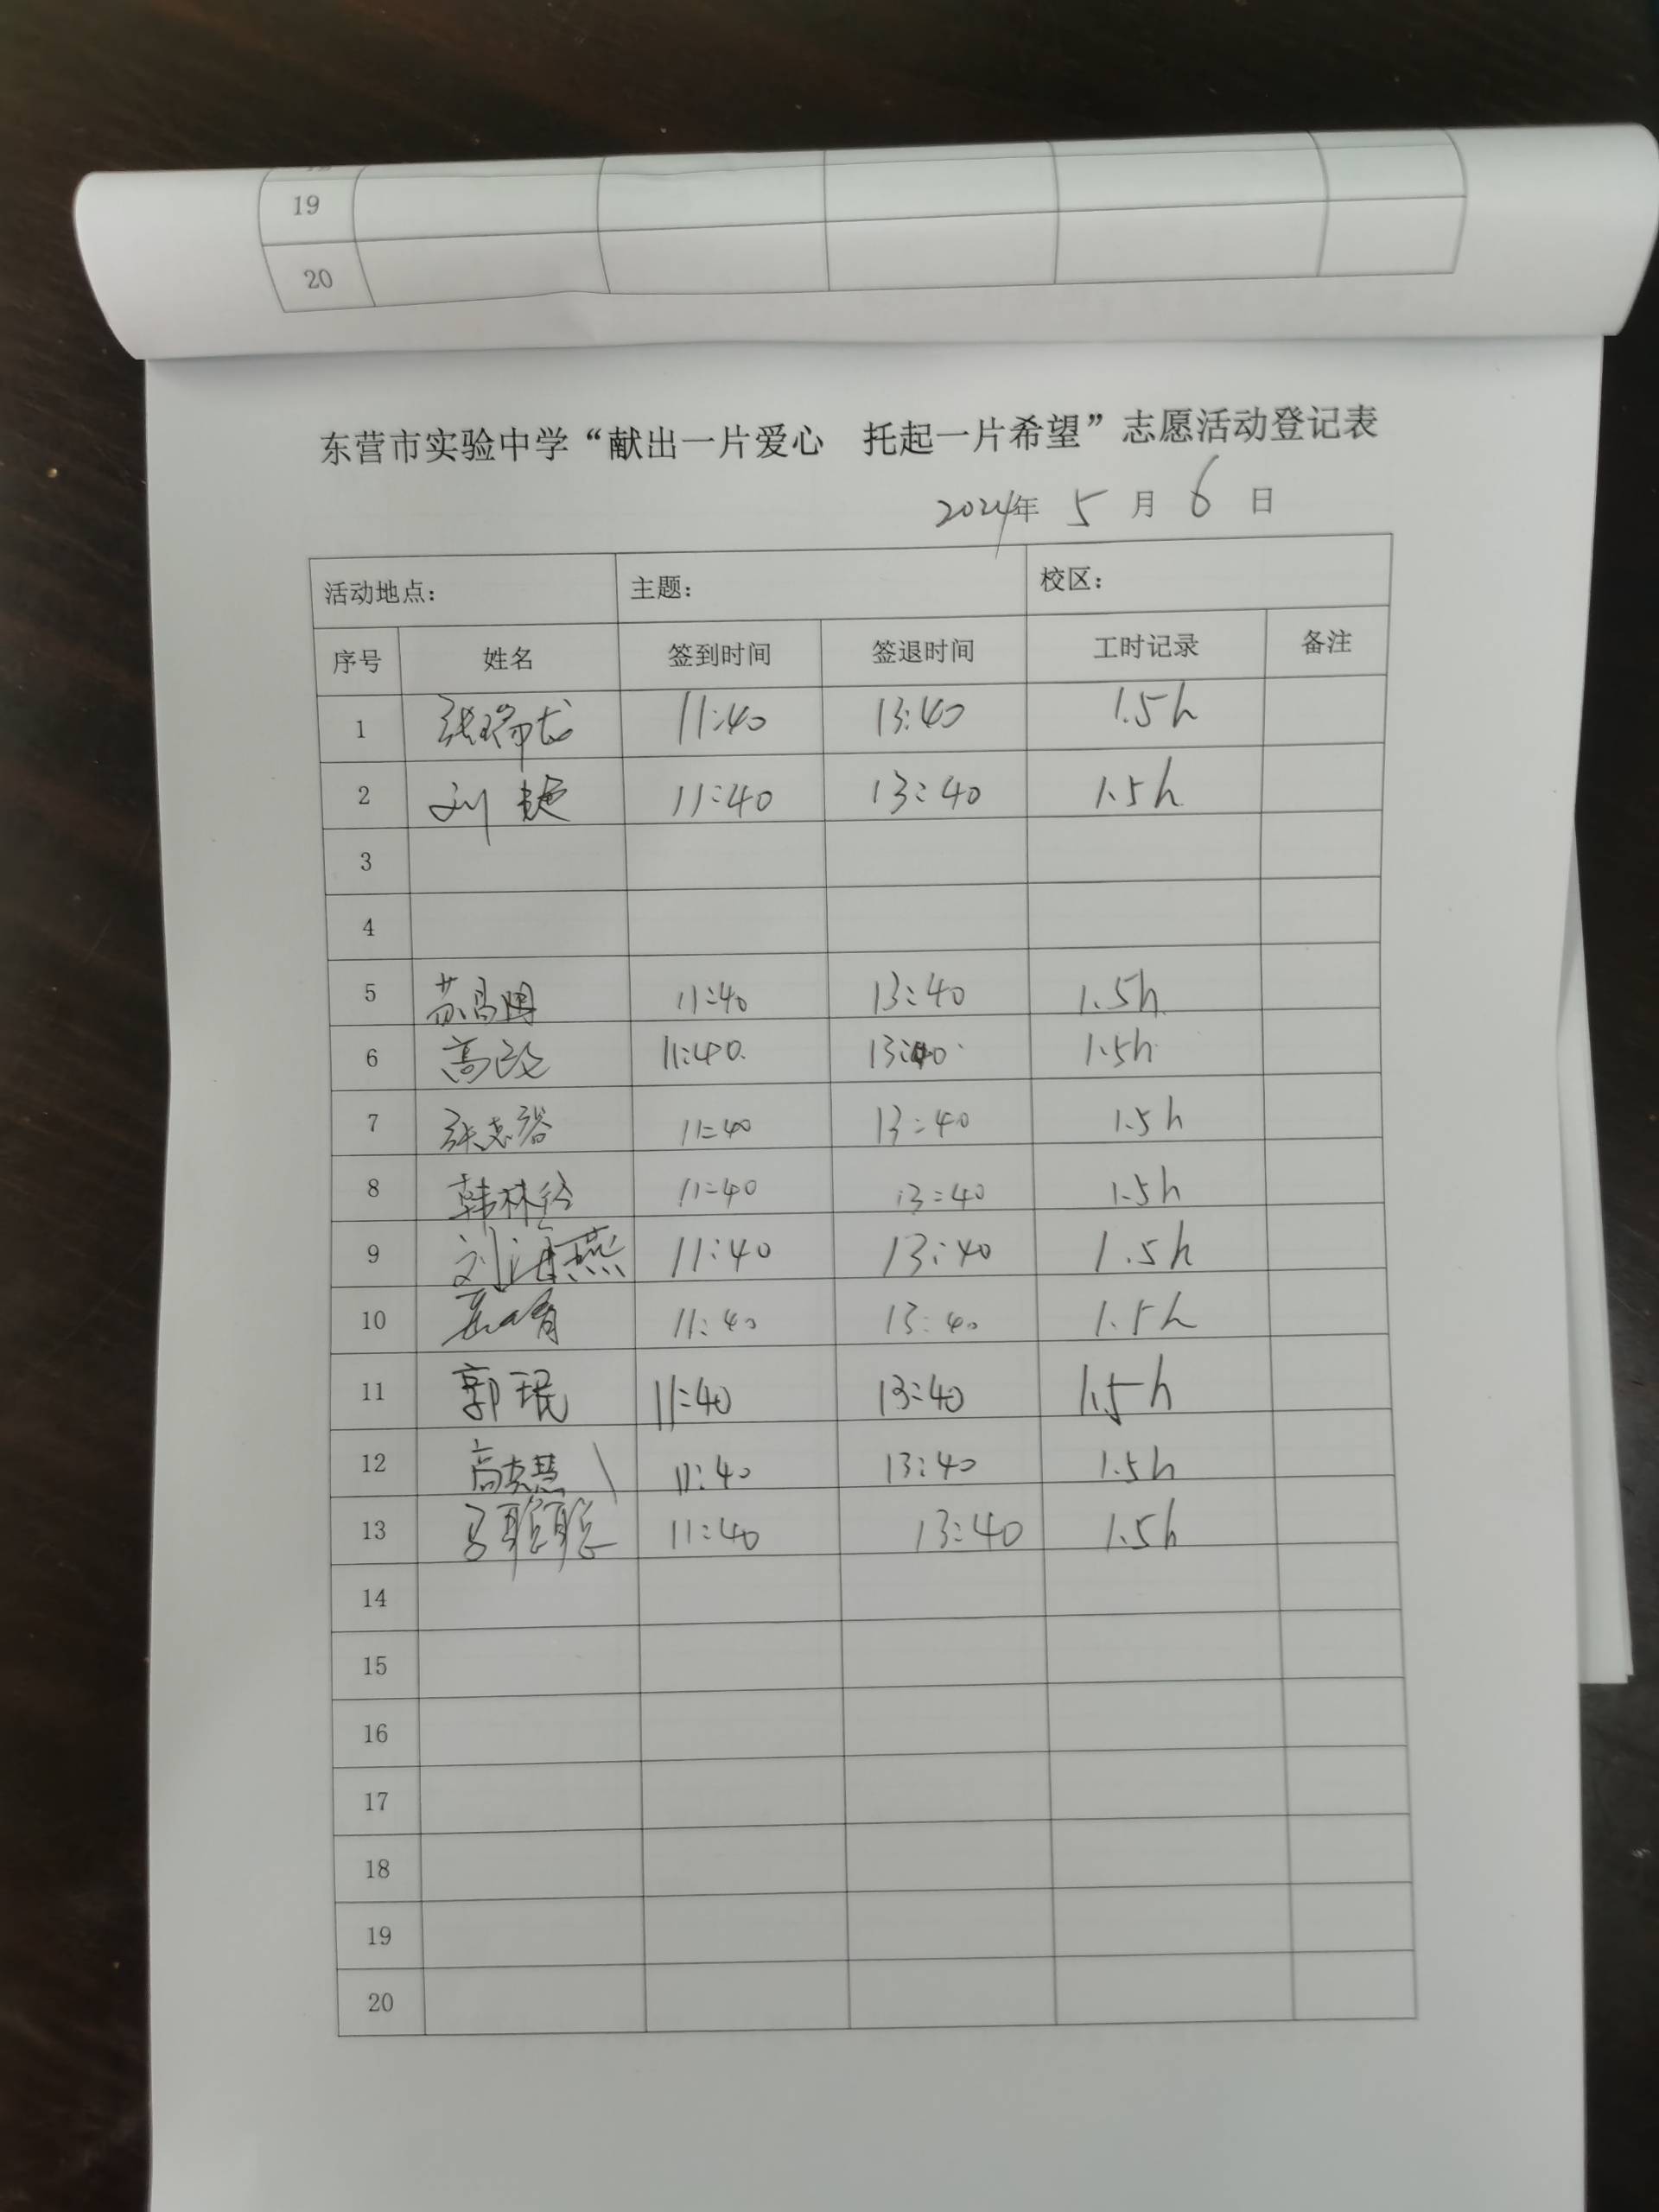 19
20
东营市实验中学“献出一片爱心 托起一片希望”志愿活动登记表
2024年 5 月 6 日
活动地点: 主题: 校区:
序号 姓名 签到时间 签退时间 工时记录 备注
1 张瑞龙 11:40 13:40 1.5h
2 刘 11:40 13:40 1.5h
3
4
5 苏昌国 11:40 13:40 1.5h
6 高政 11:40 13:40 1.5h
7 张志 11:40 13:40 1.5h
8 韩林 11:40 13:40 1.5h
9 刘海燕 11:40 13:40 1.5h
10 11:40 13:40 1.5h
11 郭珉 11:40 13:40 1.5h
12 高志慧 11:40 13:40 1.5h
13 马聪聪 11:40 13:40 1.5h
14
15
16
17
18
19
20